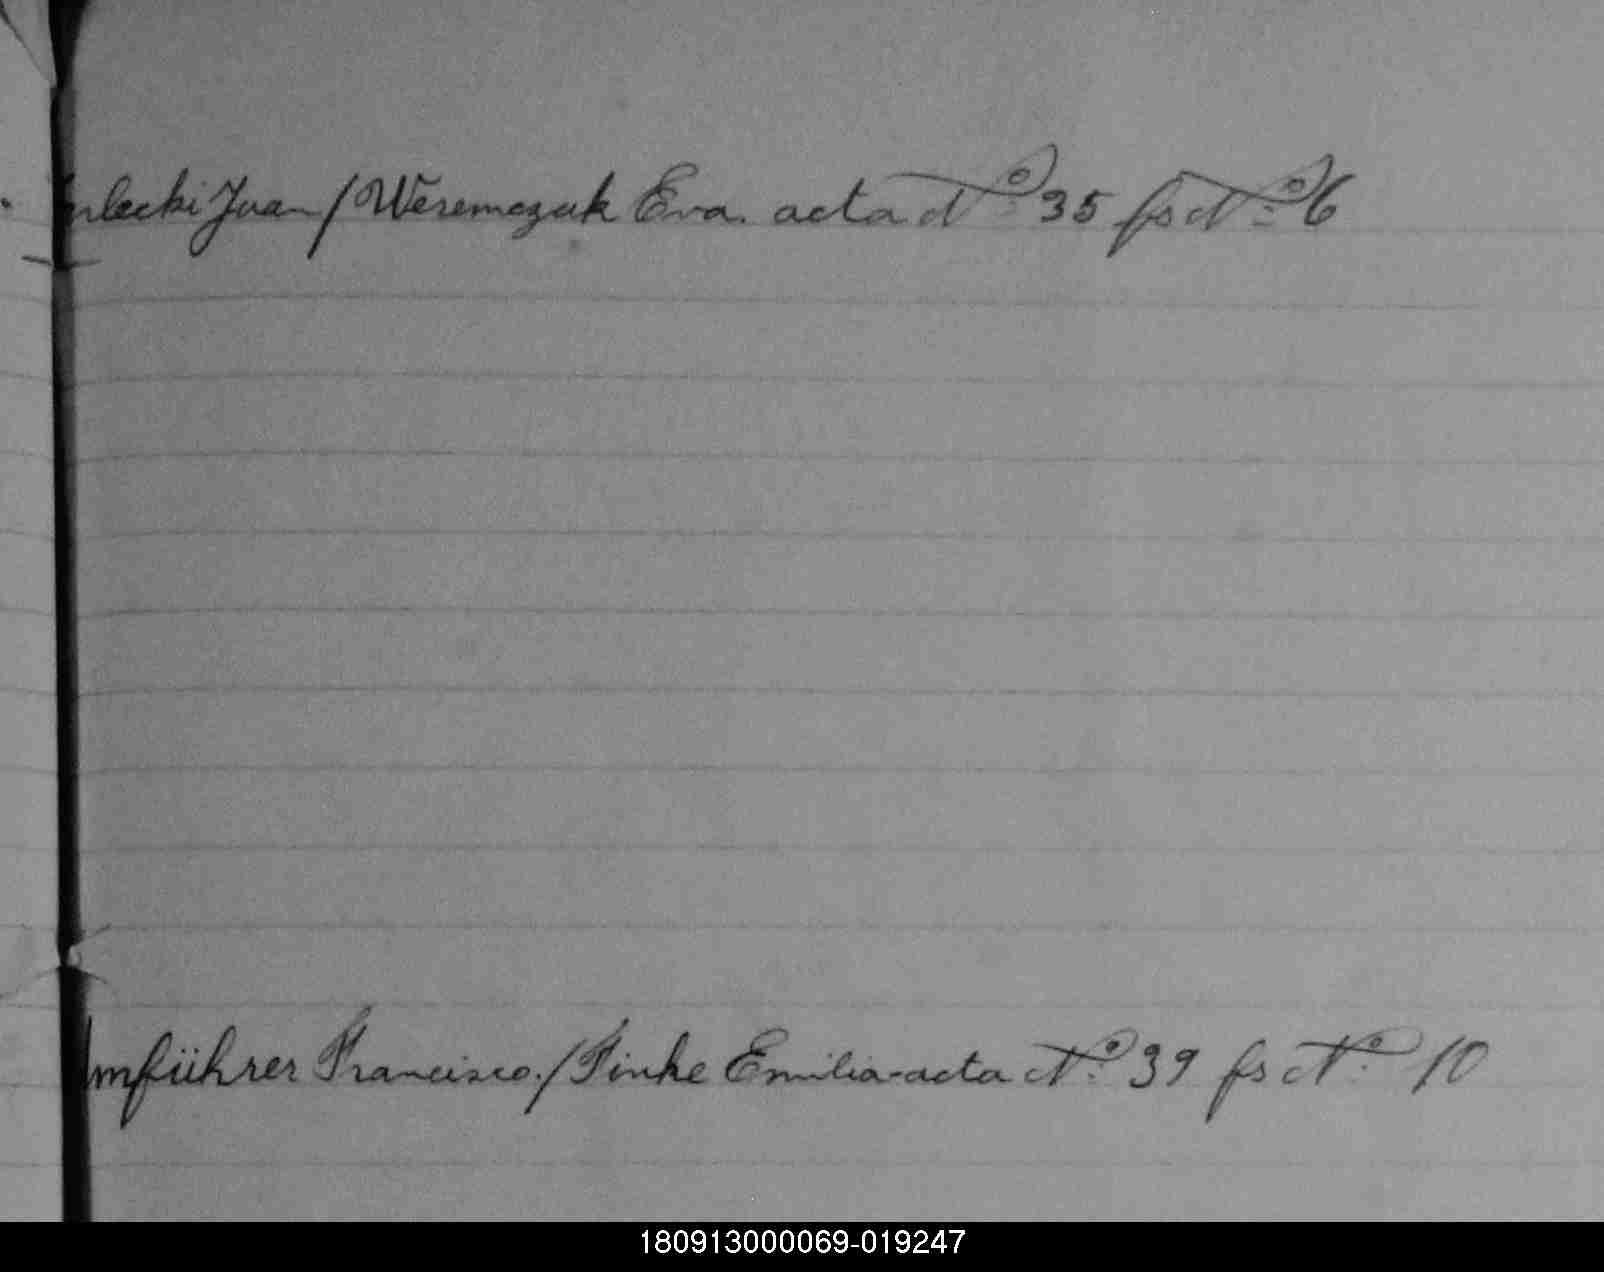 Juan / Weremczuk Eva. acta Nº 35 fs Nº 6
Francisco. / Finke Emilia - acta Nº 39 fs Nº 10
180913000069-019247